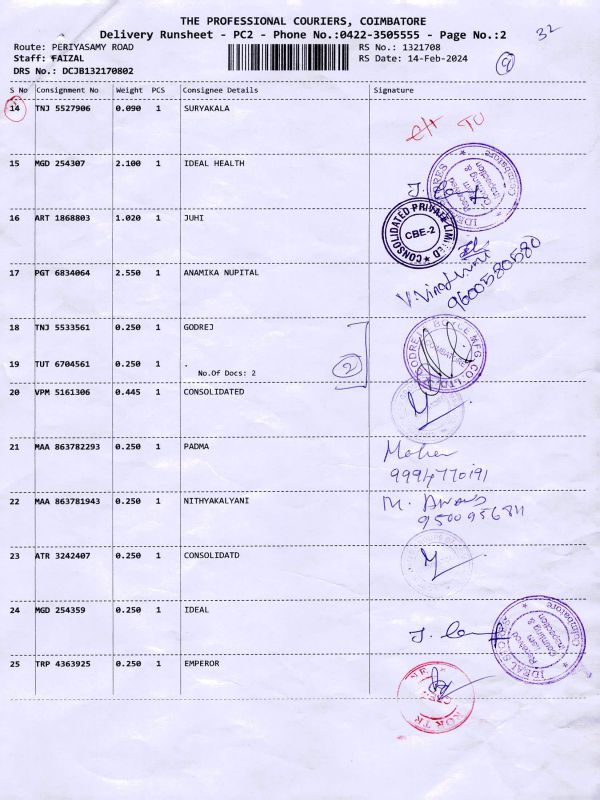 THE PROFESSIONAL COURIERS, COIMBATORE
Delivery Runsheet - PC2 - Phone No.:0422-3505555 - Page No.:2
32
Route: PERIYASAMY ROAD
RS No.: 1321708
Staff: FAIZAL
RS Date: 14-Feb-2024
9
DRS No.: DCJB132170802
S No Consignment No Weight PCS Consignee Details Signature
14 TNJ 5527906 0.090 1 SURYAKALA
15 MGD 254307 2.100 1 IDEAL HEALTH
16 ART 1868803 1.020 1 JUHI
CONSOLIDATED PRIVATE LIMITED
CBE-2
17 PGT 6834064 2.550 1 ANAMIKA NUPITAL
9600580580
18 TNJ 5533561 0.250 1 GODREJ
GODREJ & BOYCE MFG. CO. LTD.
COIMBATORE
19 TUT 6704561 0.250 1 .
No.Of Docs: 2
2
20 VPM 5161306 0.445 1 CONSOLIDATED
21 MAA 863782293 0.250 1 PADMA
9994770191
22 MAA 863781943 0.250 1 NITHYAKALYANI
23 ATR 3242407 0.250 1 CONSOLIDATD
24 MGD 254359 0.250 1 IDEAL
IDEAL STORES
Coimbatore
Received
Counting &
Inspection
25 TRP 4363925 0.250 1 EMPEROR